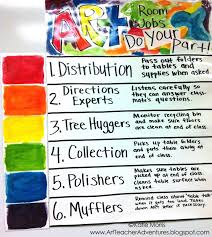 ART Room
Jobs
Do Your Part!
1. Distribution
Pass out folders
to tables and
supplies when asked.
2. Directions
Experts
Listens carefully so
they can answer class-
mate's questions.
3. Tree Huggers
Monitor recycling bin
and make sure floors
are clean at end of class.
4. Collection
Pick up table folders
and them away
at end of class.
5. Polishers
Makes sure tables are
at end of class.
table surface when
asked.
6. Mufflers
Remind class "table talk"
when it gets too loud.
lights
©Katie Morris
www.ArtTeacherAdventures.blogspot.com